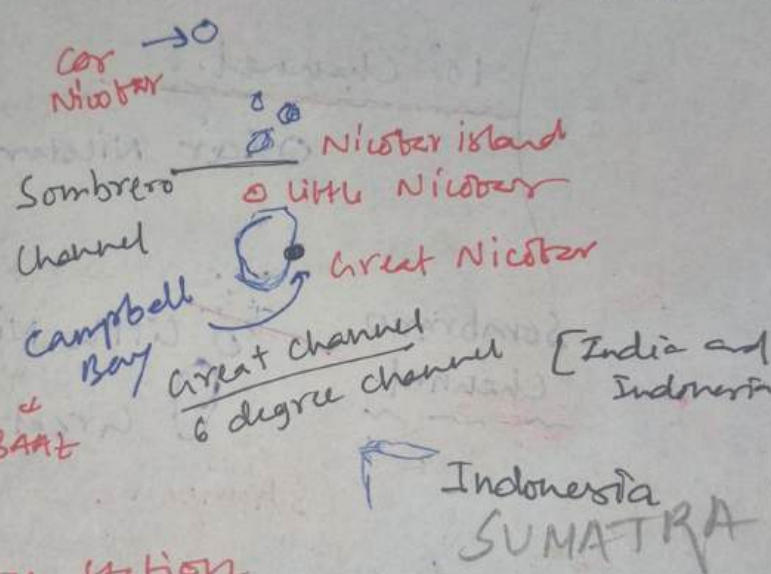 Car
Nicobar
Nicobar island
Sombrero
Channel
Little Nicobar
Great Nicobar
Campbell
Bay
Great channel
6 degree channel
[India and
Indonesia
Indonesia
SUMATRA